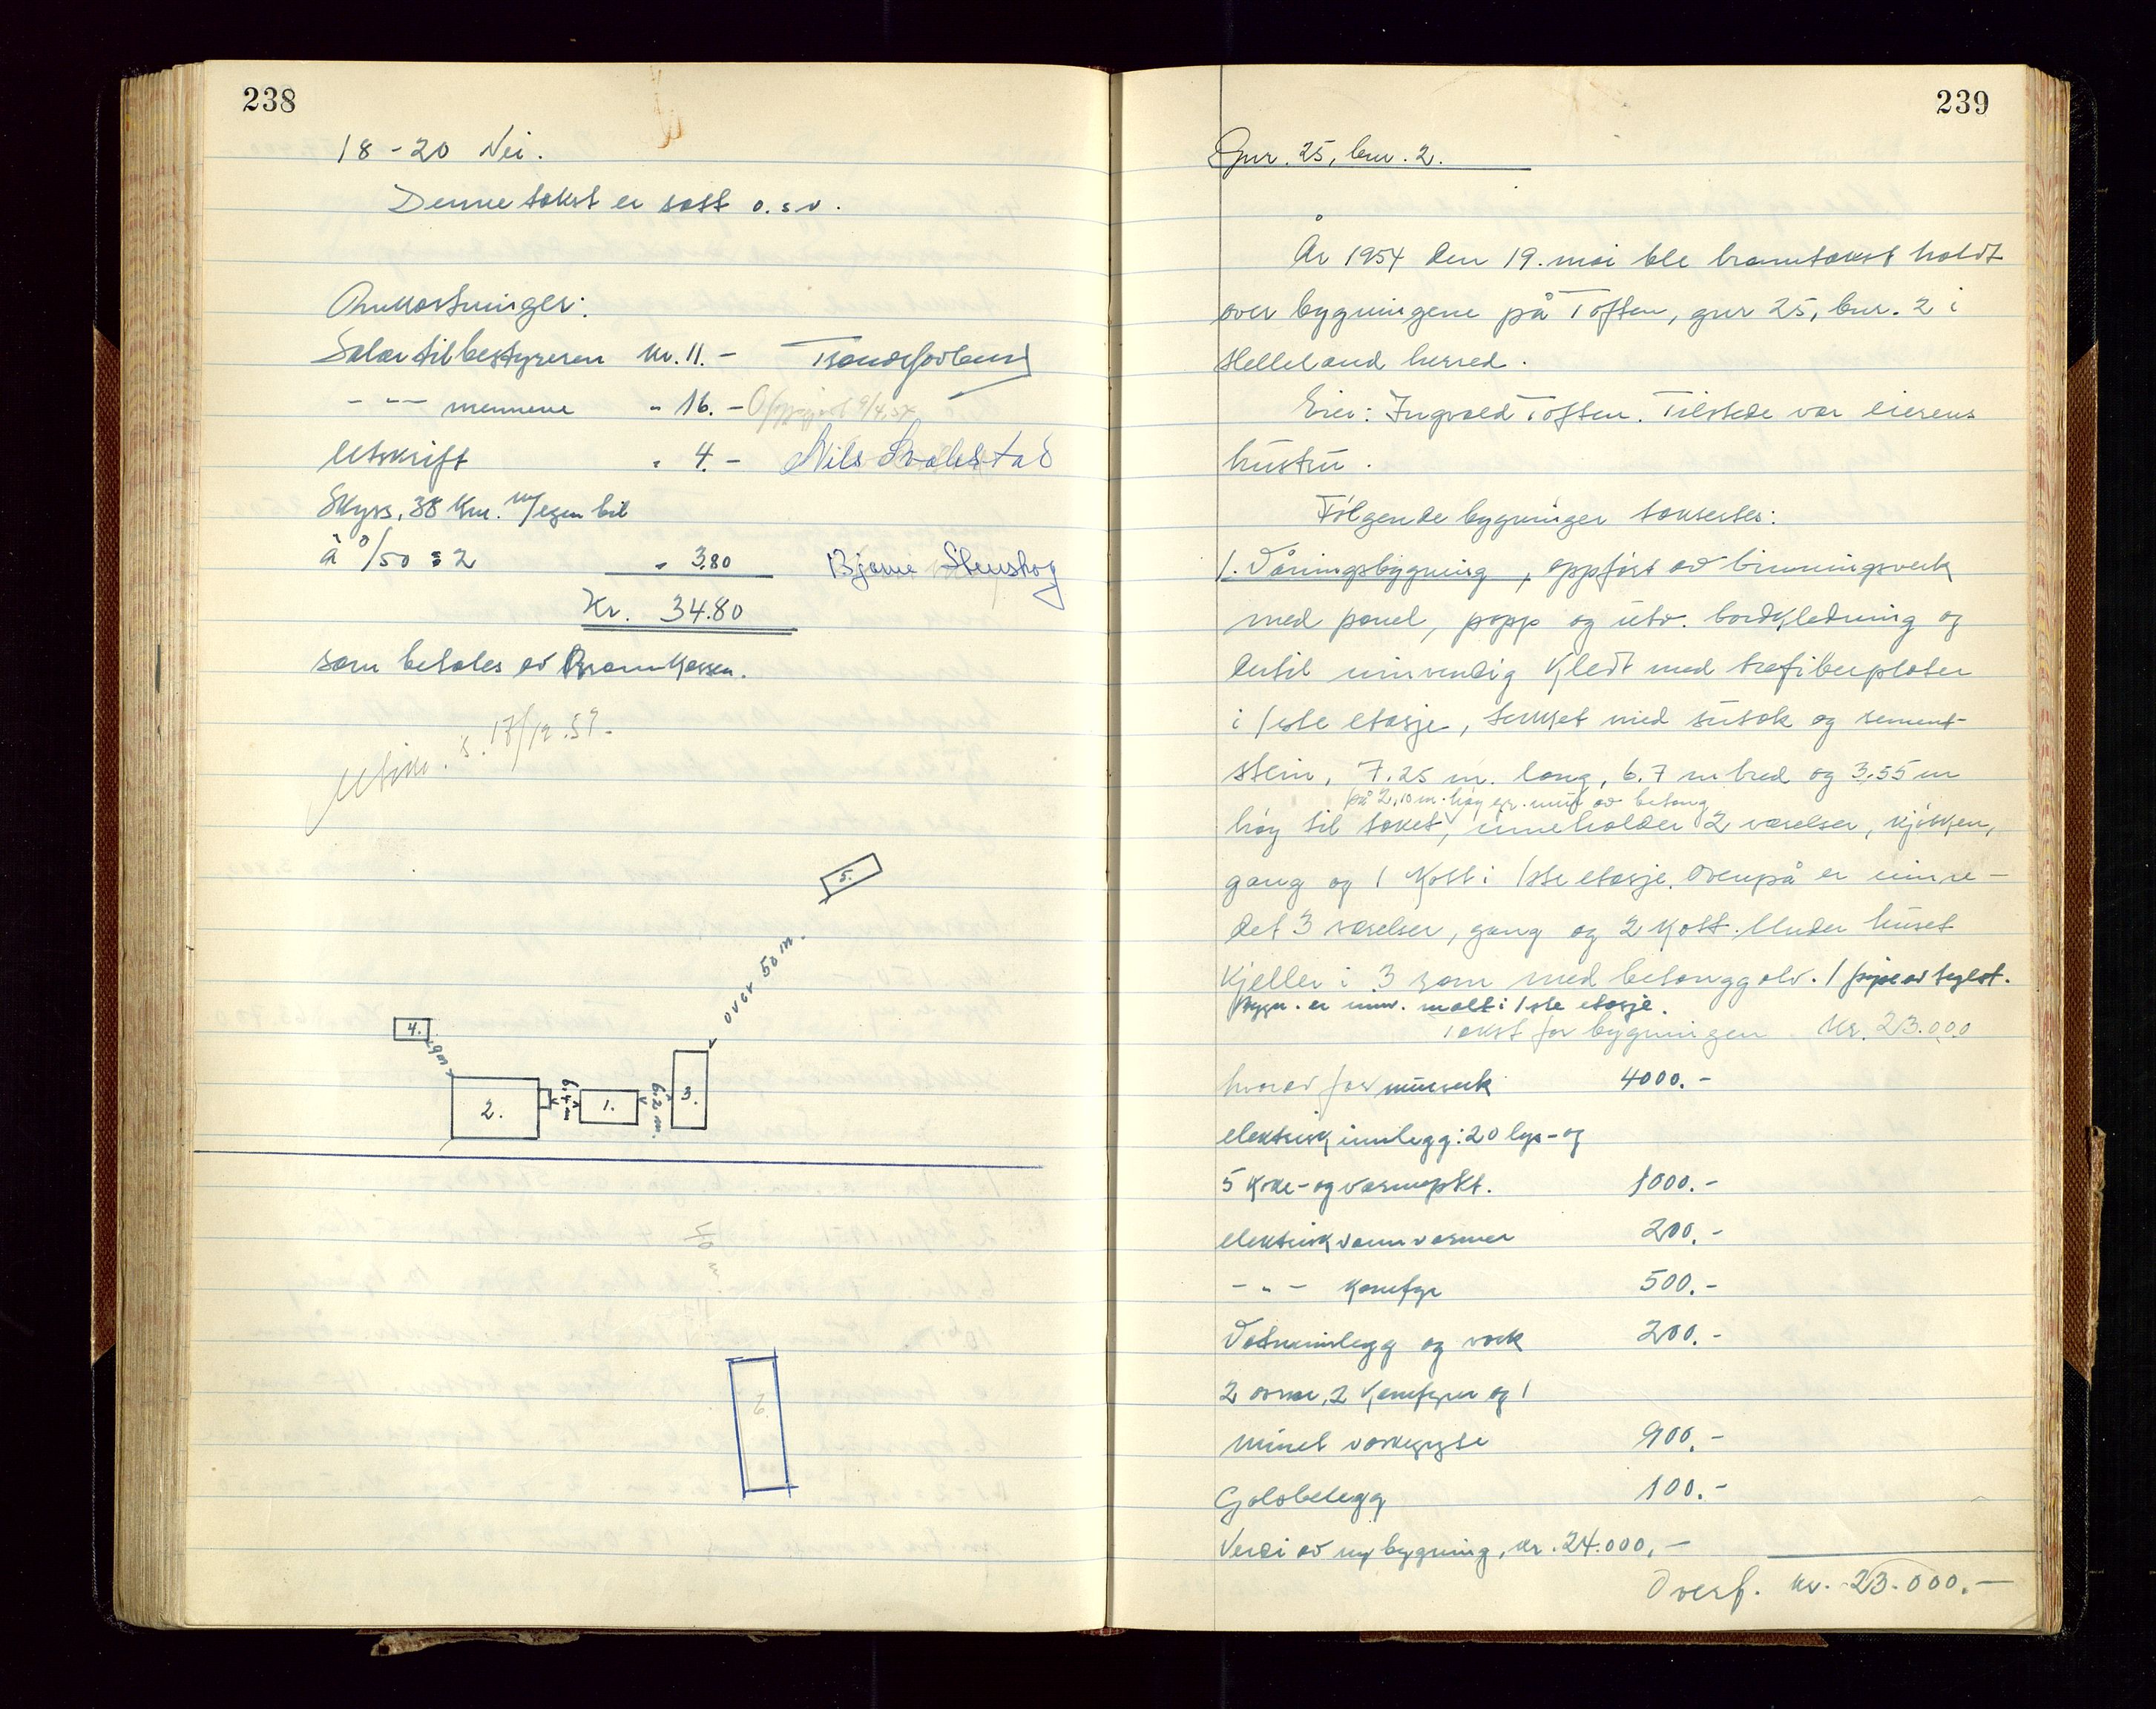 238
18-20 Nei.
Denne takst er satt o.s.v.
Omkostninger:
Salær til bestyreren kr. 11.-
- " - mennene " 16.- Oppgjort 9/4.54
Utskrift " 4.- Nils
Skyss, 38 km. m/egen bil
à 0/50 : 2 " 3.80 Bjarne Stenskog
Kr. 34.80
som betales av Brannkassen.
17/12.57.
5.
over 50 m.
4.
9 m
2.
1.
6.2 m.
3.
6
239
Gnr. 25, bnr. 2.
År 1954 den 19. mai ble branntakst holdt
over bygningene på Toften, gnr 25, bnr. 2 i
Helleland herred.
Eier: Ingvald Toften. Tilstede var eierens
hustru.
Følgende bygninger takseres:
1. Våningsbygning, oppført av binningsverk
med panel, papp og utv. bordkledning og
dertil innvendig kledt med trefiberplater
i 1ste etasje, tekket med sutak og sement-
stein, 7.25 m. lang, 6.7 m bred og 3.55 m
på 2,10 m. høg gr. mur av betong
høg til taket, inneholder 2 værelser, kjøkken,
gang og 1 kott i 1ste etasje. Ovenpå er innre-
det 3 værelser, gang og 2 kott. Under huset
kjeller i 3 rom med betonggolv. 1 pipe av teglst.
Bygn. er innv. malt i 1ste etasje.
Takst for bygningen kr. 23.000
hvorav for murverk 4000.-
elektrisk innlegg: 20 lys- og
5 koke- og varmepkt. 1000.-
elektrisk vannvarmer 200.-
- " - komfyr 500.-
Vatninnlegg og vask 200.-
2 ovner, 2 komfyrer og 1
muret vaskegryte 900.-
Golvbelegg 100.-
Verdi av ny bygning, kr. 24.000,-
Overf. kr. 23.000.-